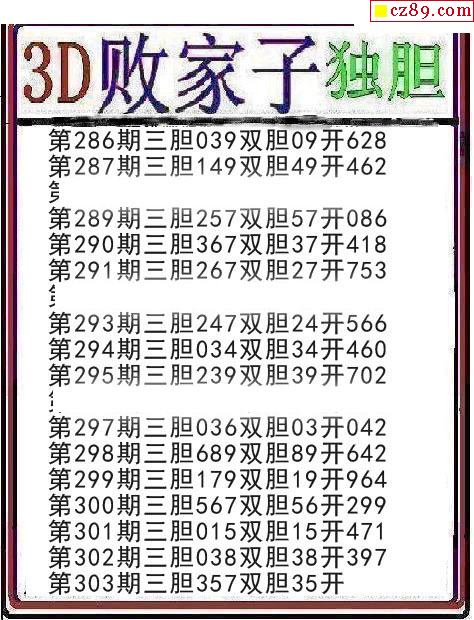 cz89.com
3D败家子独胆
第286期三胆039双胆09开628
第287期三胆149双胆49开462
第
第289期三胆257双胆57开086
第290期三胆367双胆37开418
第291期三胆267双胆27开753
第293期三胆247双胆24开566
第294期三胆034双胆34开460
第295期三胆239双胆39开702
第297期三胆036双胆03开042
第298期三胆689双胆89开642
第299期三胆179双胆19开964
第300期三胆567双胆56开299
第301期三胆015双胆15开471
第302期三胆038双胆38开397
第303期三胆357双胆35开